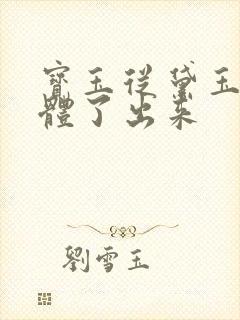 寶玉從黛玉
體了出來
劉雪玉